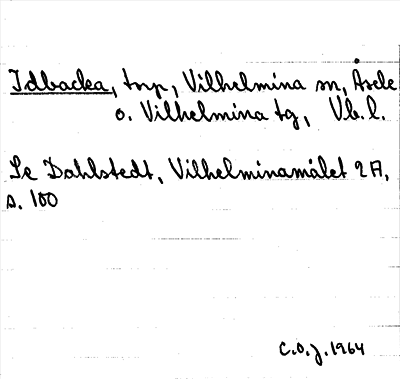 Idbacka, torp, Vilhelmina sn, Åsele
o. Vilhelmina tg, Vb. l.
Se Dahlstedt, Vilhelminamålet 2 A,
s. 100
C.O.J. 1964